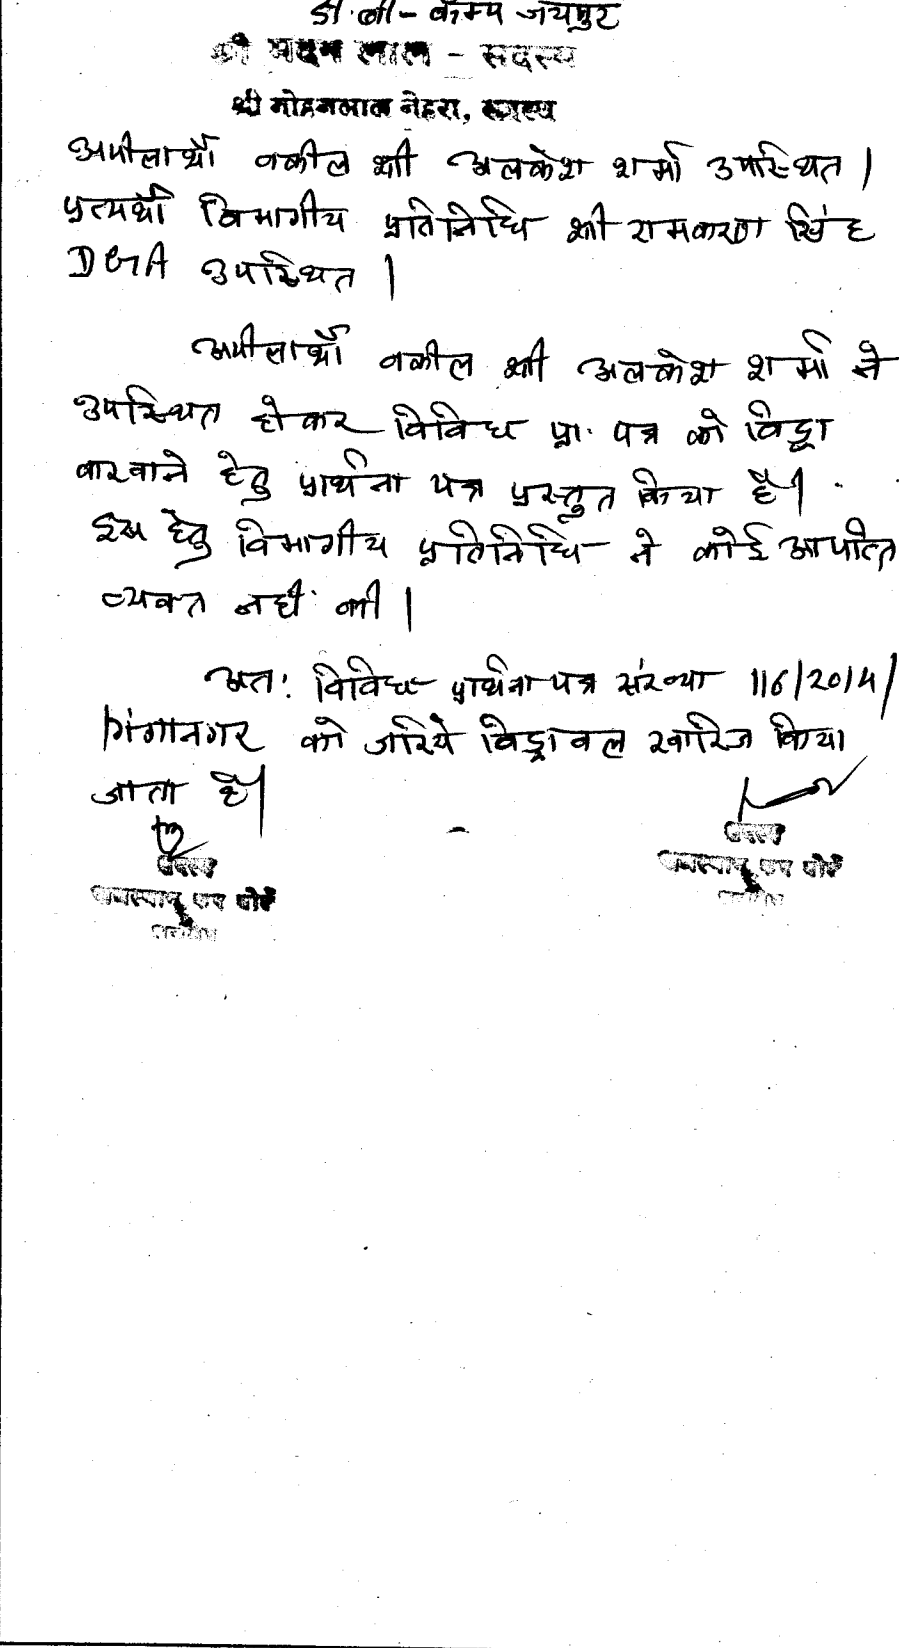 डी.बी - कैम्प जयपुर
श्री मदन लाल - सदस्य
श्री मोहनलाल नेहरा, सदस्य
अपीलार्थी वकील श्री अलकेश शर्मा उपस्थित |
प्रत्यर्थी विभागीय प्रतिनिधि श्री रामकरण सिंह
DGA उपस्थित |
अपीलार्थी वकील श्री अलकेश शर्मा ने
उपस्थित होकर विविध प्रा. पत्र को विड्रा
करवाने हेतु प्रार्थना पत्र प्रस्तुत किया है|
इस हेतु विभागीय प्रतिनिधि ने कोई आपत्ति
व्यक्त नहीं की |
अतः विविध प्रार्थना पत्र संख्या 116/2014/
गंगानगर को जरिये विड्रावल खारिज किया
जाता है|
सदस्य
सदस्य
कर बोर्ड
कर बोर्ड
अजमेर
अजमेर